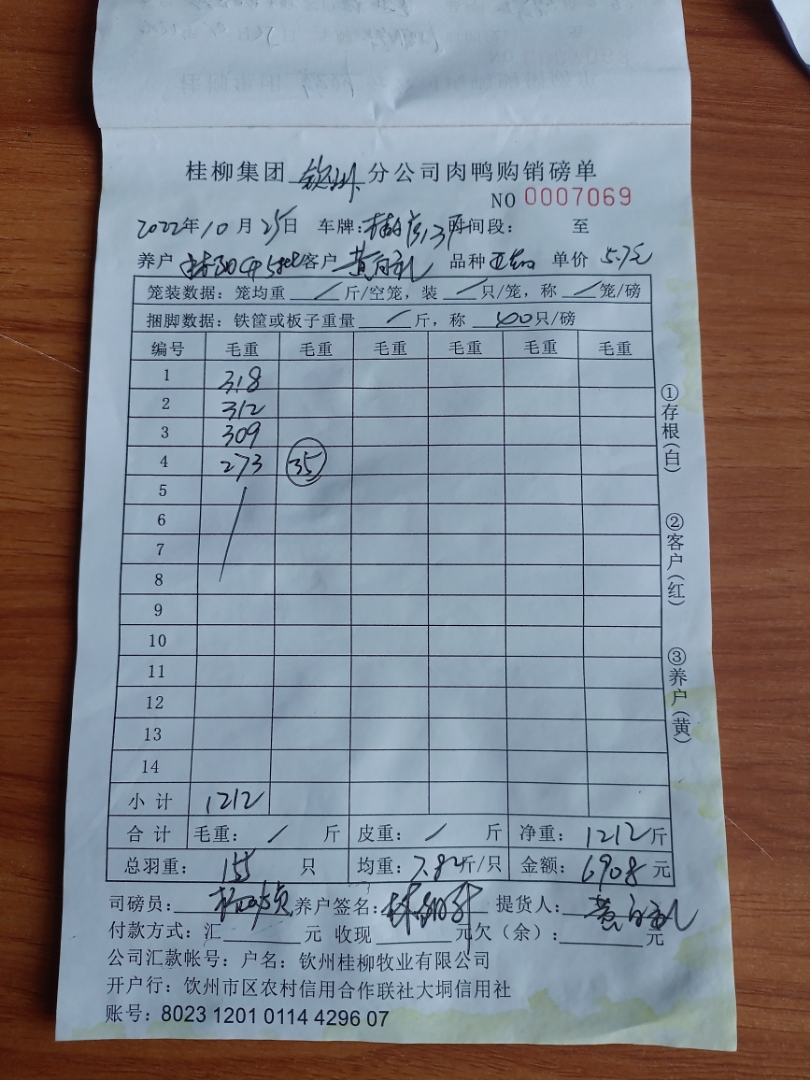 桂柳集团 钦州 分公司肉鸭购销磅单
NO 0007069
2022年10月25日 车牌: 时间段: 至
养户 客户 黄 品种 单价 5.7元
笼装数据：笼均重 / 斤/空笼，装 / 只/笼，称 / 笼/磅
捆脚数据：铁筐或板子重量 / 斤，称 只/磅
编号 毛重 毛重 毛重 毛重 毛重 毛重
1 318
2 312
3 309
4 273 35
5
6
7
8
9
10
11
12
13
14
小计 1212
合计 毛重: / 斤 皮重: / 斤 净重: 1212斤
总羽重: 155 只 均重: 7.82斤/只 金额: 6908元
司磅员: 养户签名: 提货人: 黄
付款方式：汇 元 收现 元欠（余）: 元
公司汇款帐号：户名：钦州桂柳牧业有限公司
开户行：钦州市区农村信用合作联社大垌信用社
账号：8023 1201 0114 4296 07
①存根(白)
②客户(红)
③养户(黄)